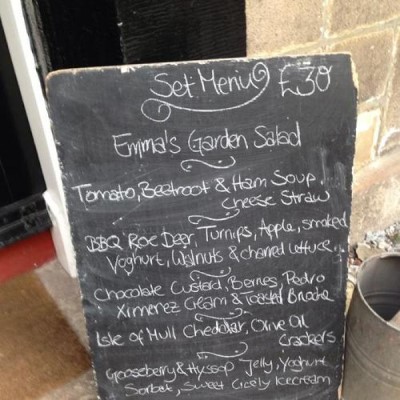 Set Menu £30
Emma's Garden Salad
Tomato, Beetroot & Ham Soup,
Cheese Straw
BBQ Roe Deer, Turnips, Apple, smoked
Yoghurt, Walnuts & charred lettuce
Chocolate Custard, Berries, Pedro
Ximenez Cream & Toasted Brioche
Isle of Mull Cheddar, Olive Oil
Crackers
Gooseberry & Hyssop Jelly, Yoghurt
Sorbet, Sweet Cicely Icecream